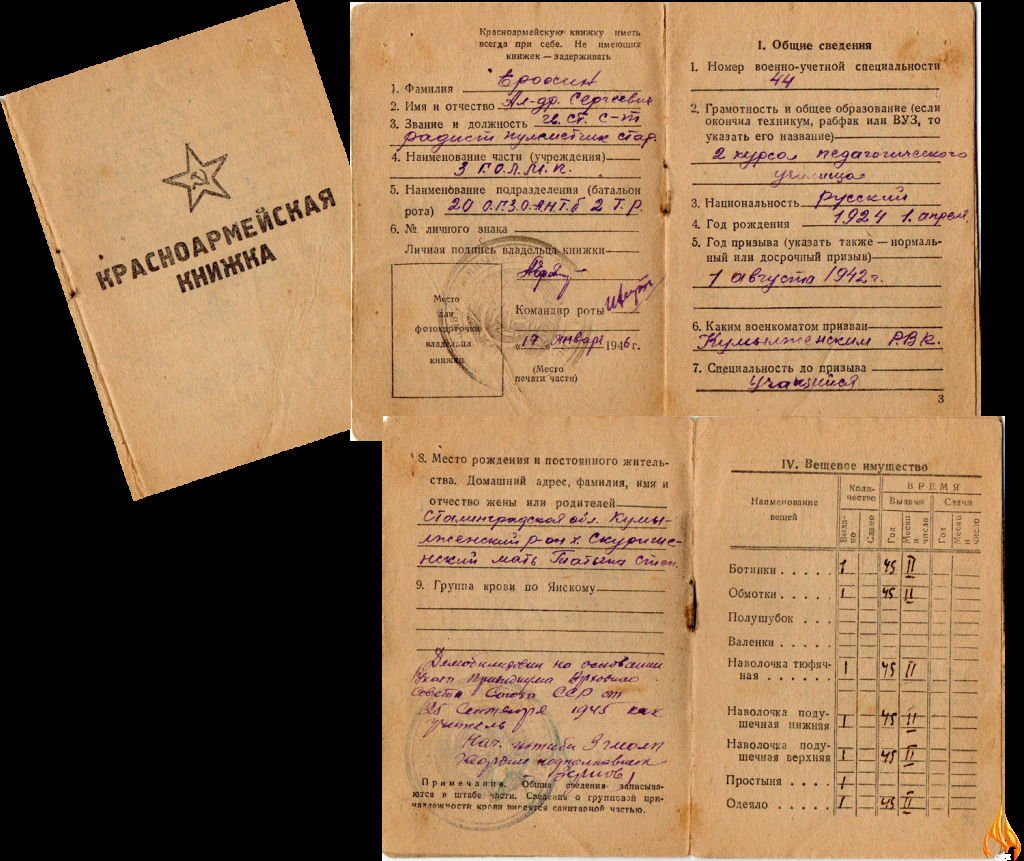 КРАСНОАРМЕЙСКАЯ
КНИЖКА
Красноармейскую книжку иметь
всегда при себе. Не имеющих
книжек — задерживать
1. Фамилия
2. Имя и отчество Ал-др. Сергеевич
3. Звание и должность гв. ст. с-т
радист пулеметчик
4. Наименование части (учреждения)
5. Наименование подразделения (батальон
рота) 20
6. № личного знака
Личная подпись владельца книжки
Место
для
фотокарточки
владельца
книжки
Командир роты
„17" Января 1946 г.
(Место
печати части)
I. Общие сведения
1. Номер военно-учетной специальности
44
2. Грамотность и общее образование (если
окончил техникум, рабфак или ВУЗ, то
указать его название)
2 курса педагогического
училища
3. Национальность Русский
4. Год рождения 1924 1. апрел.
5. Год призыва (указать также — нормаль-
ный или досрочный призыв)
1 августа 1942 г.
6. Каким военкоматом призван
Кумылженским РВК.
7. Специальность до призыва
учащийся
3
8. Место рождения и постоянного житель-
ства. Домашний адрес, фамилия, имя и
отчество жены или родителей
Сталинградская обл. Кумы-
лженский р-он х. Скурише-
нский мать Татьяна Степ.
9. Группа крови по Янскому
Демобилизован на основании
Указа Президиума Верховного
Совета Союза ССР от
25 Сентября 1945 как
учитель
Нач. штаба
Гвардии подполковник
Примечание. Общие сведения записыва-
ются в штабе части. Сведения о групповой при-
надлежности крови вносятся санитарной частью.
IV. Вещевое имущество
Наименование
вещей
Коли-
чество
ВРЕМЯ
Выдачи
Сдачи
Выда-
но
Сдано
Год
Месяц
и
число
Год
Месяц
и
число
Ботинки . . . . . 1 45 II
Обмотки . . . . . 1 45 II
Полушубок . . .
Валенки . . . . .
Наволочка тюфяч-
ная . . . . . . 1 45 II
Наволочка поду-
шечная нижняя 1 45 II
Наволочка поду-
шечная верхняя 1 45 II
Простыня . . . . 1
Одеяло . . . . . 1 45 II